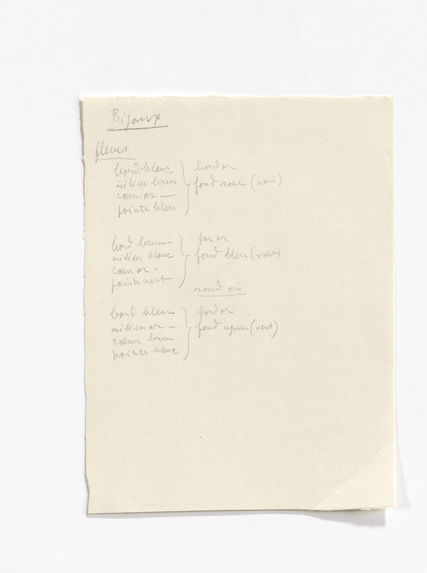 Bijoux
fleurs
bord blanc
milieu brun
cœur or
pointe bleu
bord or
fond rose (noir)
bord brun
milieu blanc
cœur or
pointe vert
or
fond bleu (violet)
rond or
bord bleu
milieu or
cœur brun
pointe blanc
bord or
fond (vert)